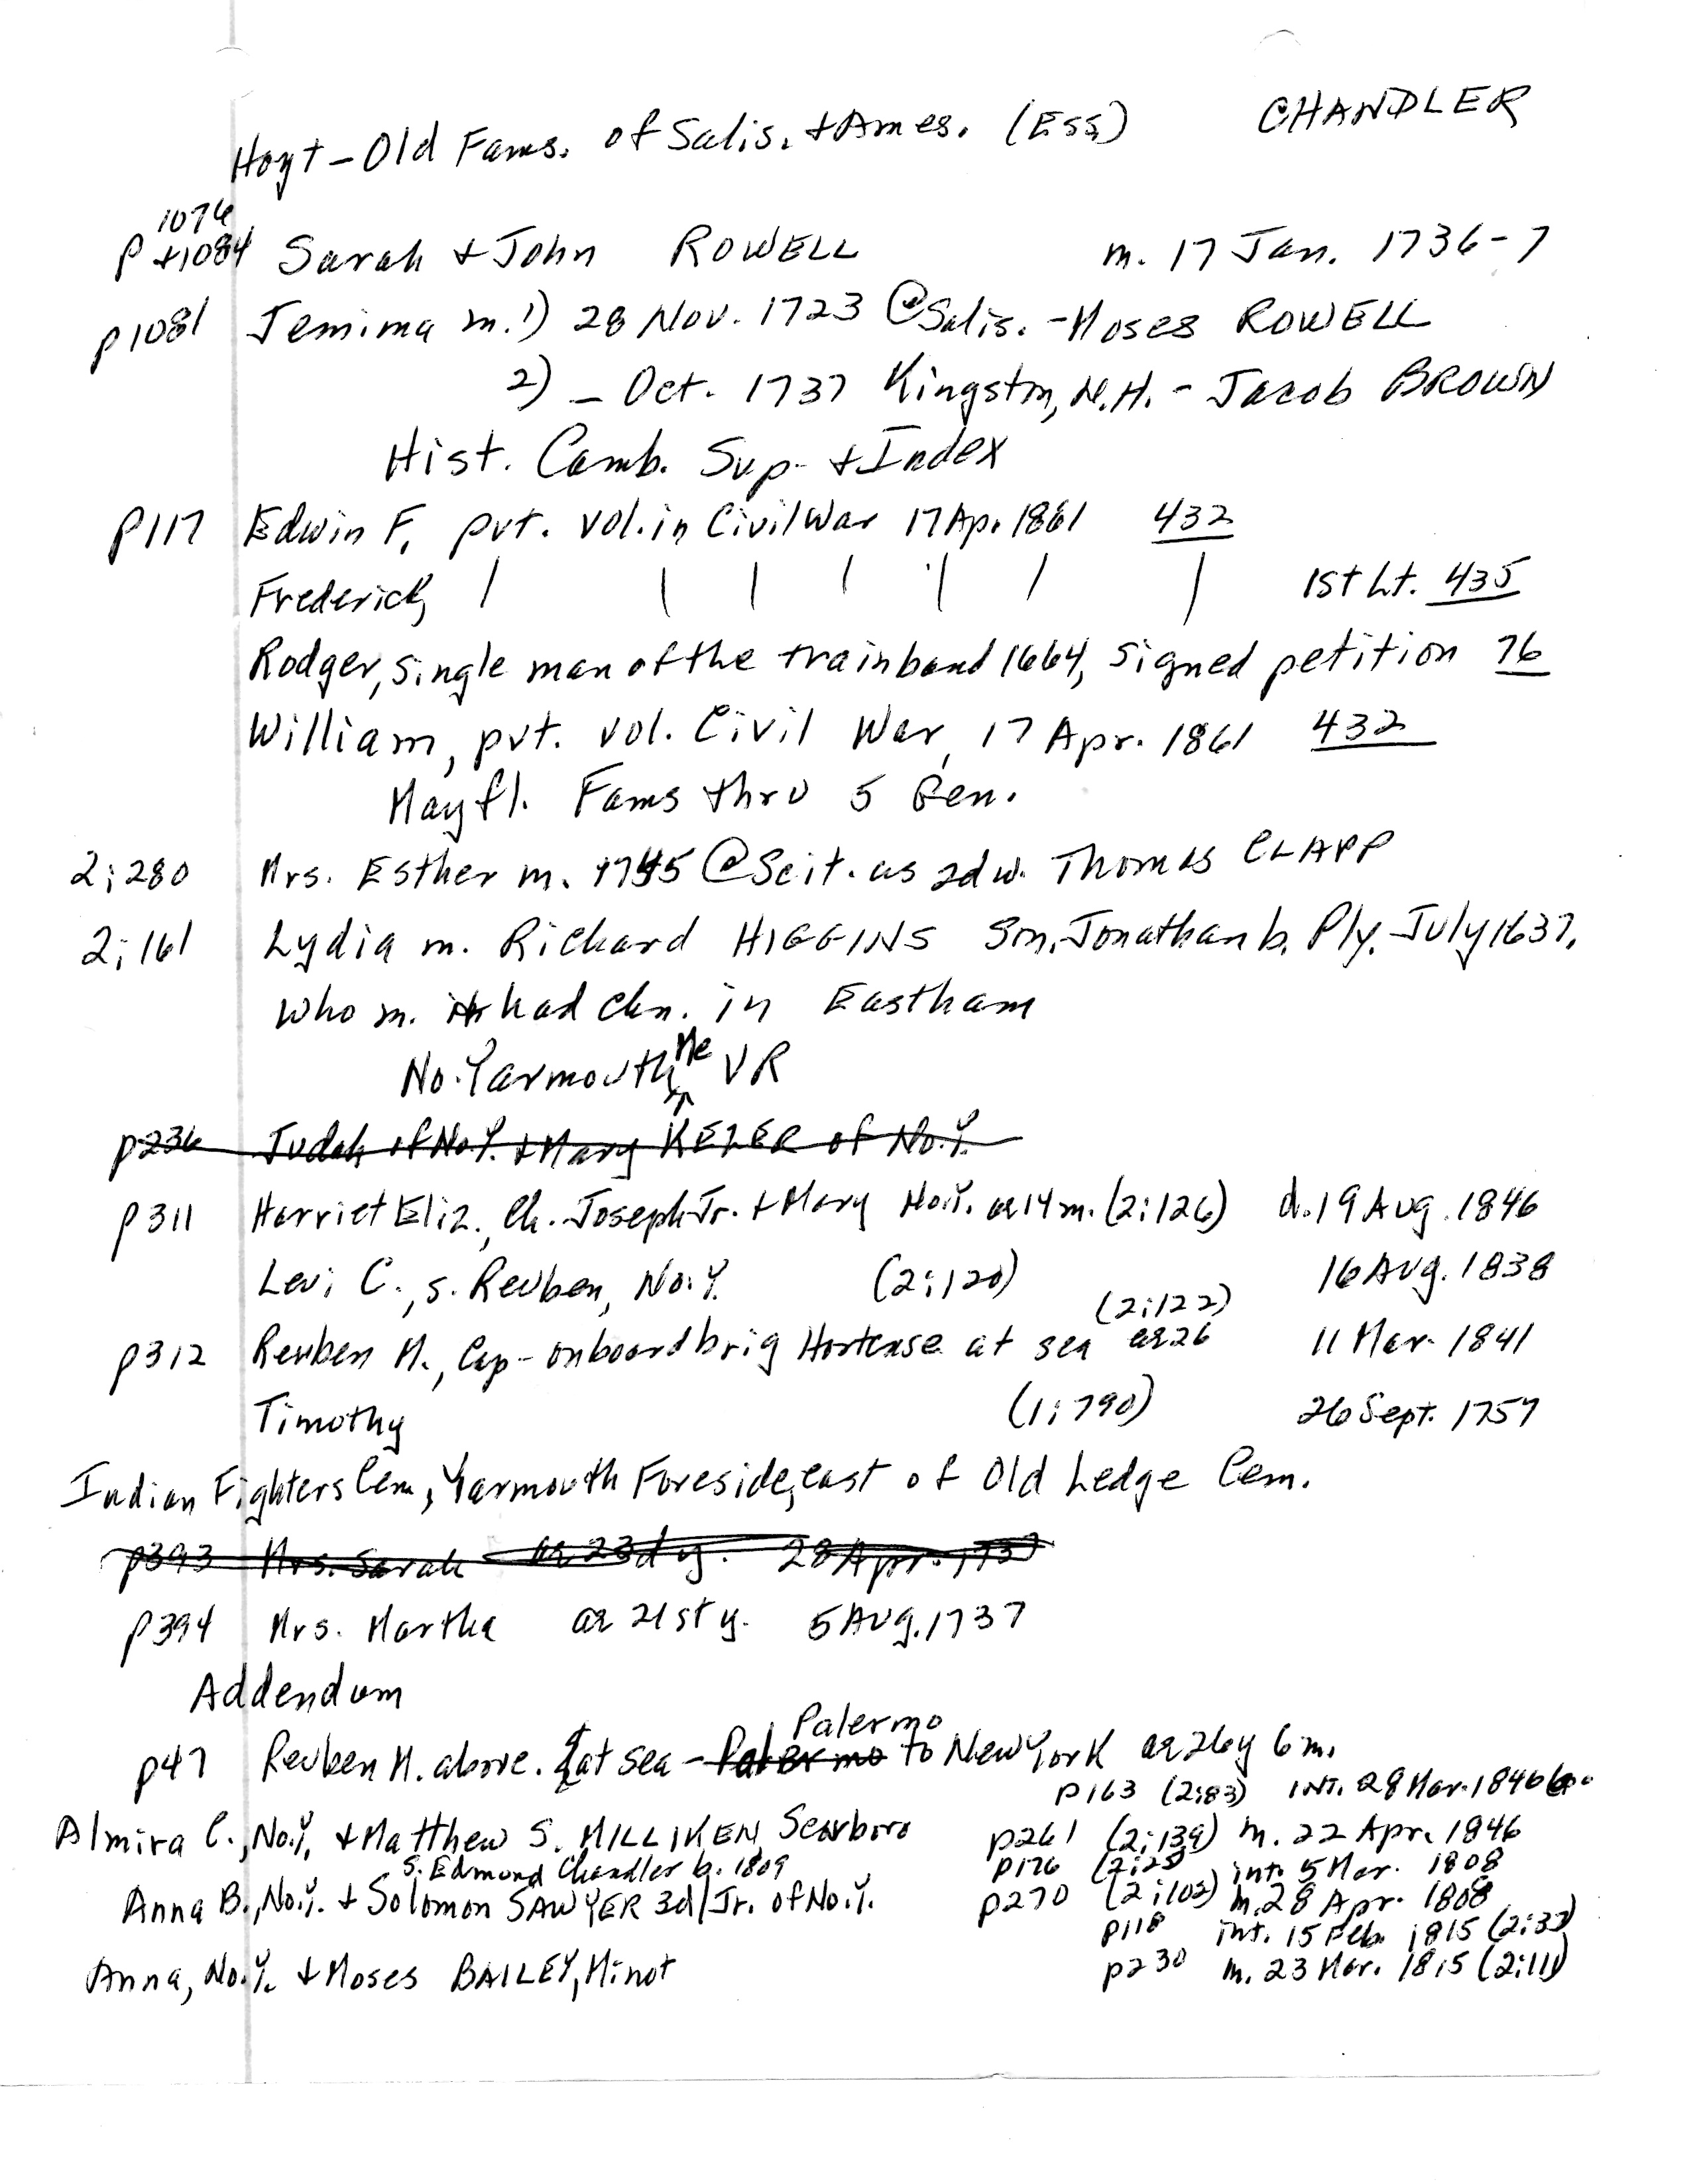 CHANDLER
Hoyt - Old Fams. of Salis. + Ames. (Ess)
1076
p +1084 Sarah + John ROWELL m. 17 Jan. 1736-7
p1081 Jemima m. 1) 28 Nov. 1723 @ Salis. - Moses ROWELL
2) - Oct. 1737 Kingston, N.H. - Jacob BROWN
Hist. Camb. Sup. + Index
p117 Edwin F. pvt. vol. in Civil War 17 Ap. 1861 432
Frederick | | | | | | | 1st Lt. 435
Rodger, single man of the trainband 1664, signed petition 76
William, pvt. vol. Civil War, 17 Apr. 1861 432
Mayfl. Fams thru 5 Gen.
2:280 Mrs. Esther m. 1745 @ Scit. as 2d w. Thomas CLAPP
2:161 Lydia m. Richard HIGGINS Son, Jonathan b. Ply. July 1637,
who m. + had chn. in Eastham
No. Yarmouth, Me VR
p236 Judah of No.Y. + Mary KEZER of No.Y.
p311 Harriet Eliz., ch. Joseph Jr. + Mary No.Y. ae 14 m. (2:126) d. 19 Aug. 1846
Levi C., s. Reuben, No.Y. (2:120) 16 Aug. 1838
(2:122)
p312 Reuben M., Cap - onboard brig Hortense at sea ae 26 11 Mar. 1841
Timothy (1:790) 26 Sept. 1757
Indian Fighters Cem, Yarmouth Foreside, east of Old Ledge Cem.
p393 Mrs. Sarah ae 23d y. 28 Apr. 1737
p394 Mrs. Martha ae 21st y. 5 Aug. 1737
Addendum
Palermo
p47 Reuben M. above. at sea - Palermo to New York ae 26y 6m.
p163 (2:83) INT. 28 Mar. 1846
Almira C., No.Y. + Matthew S. MILLIKEN, Scarboro p261 (2:139) m. 22 Apr. 1846
S. Edmond Chandler b. 1809 p176 (2:25) int. 5 Mar. 1808
Anna B., No.Y. + Solomon SAWYER 3d/Jr. of No.Y. p270 (2:102) m. 28 Apr. 1808
p118 int. 15 Feb. 1815 (2:37)
Anna, No.Y. + Moses BAILEY, Minot p230 m. 23 Mar. 1815 (2:111)